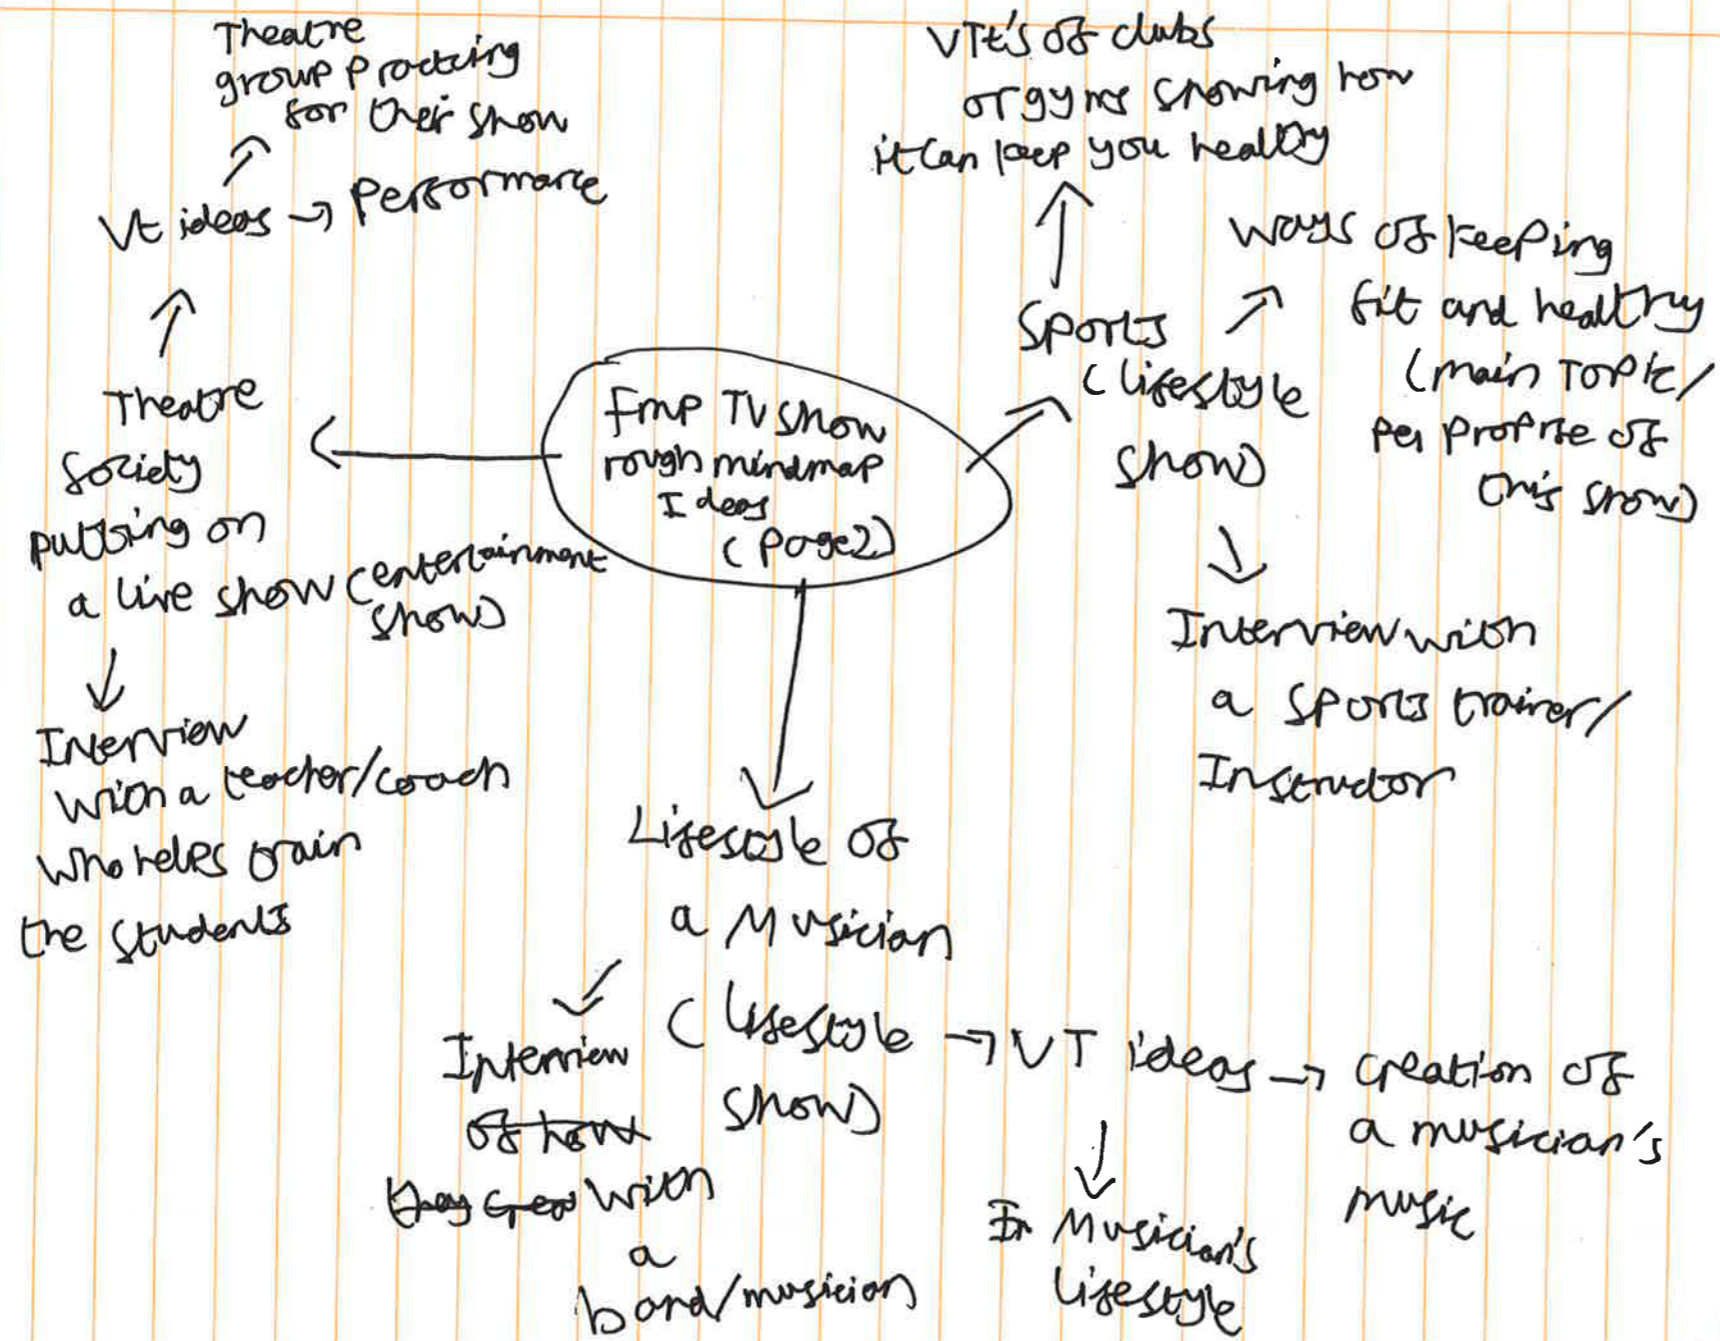 Theatre
group practcing
for their show
Vt ideas → Performance
Theatre
Society
putting on
a live show (entertainment
show)
Interview
with a teacher/coach
who helps train
the students
Fmp TV show
rough mindmap
Ideas
(page 2)
VTt's of clubs
or gyms showing how
it can keep you healthy
Sports
(lifestyle
show)
ways of keeping
fit and healthy
(main Topic/
per proprse of
this show)
Interview with
a sports trainer/
Instructor
Lifestyle of
a Musician
(lifestyle
show)
Interview
of how
they with
a
band/musician
VT ideas → creation of
a musician's
music
Musician's
lifestyle